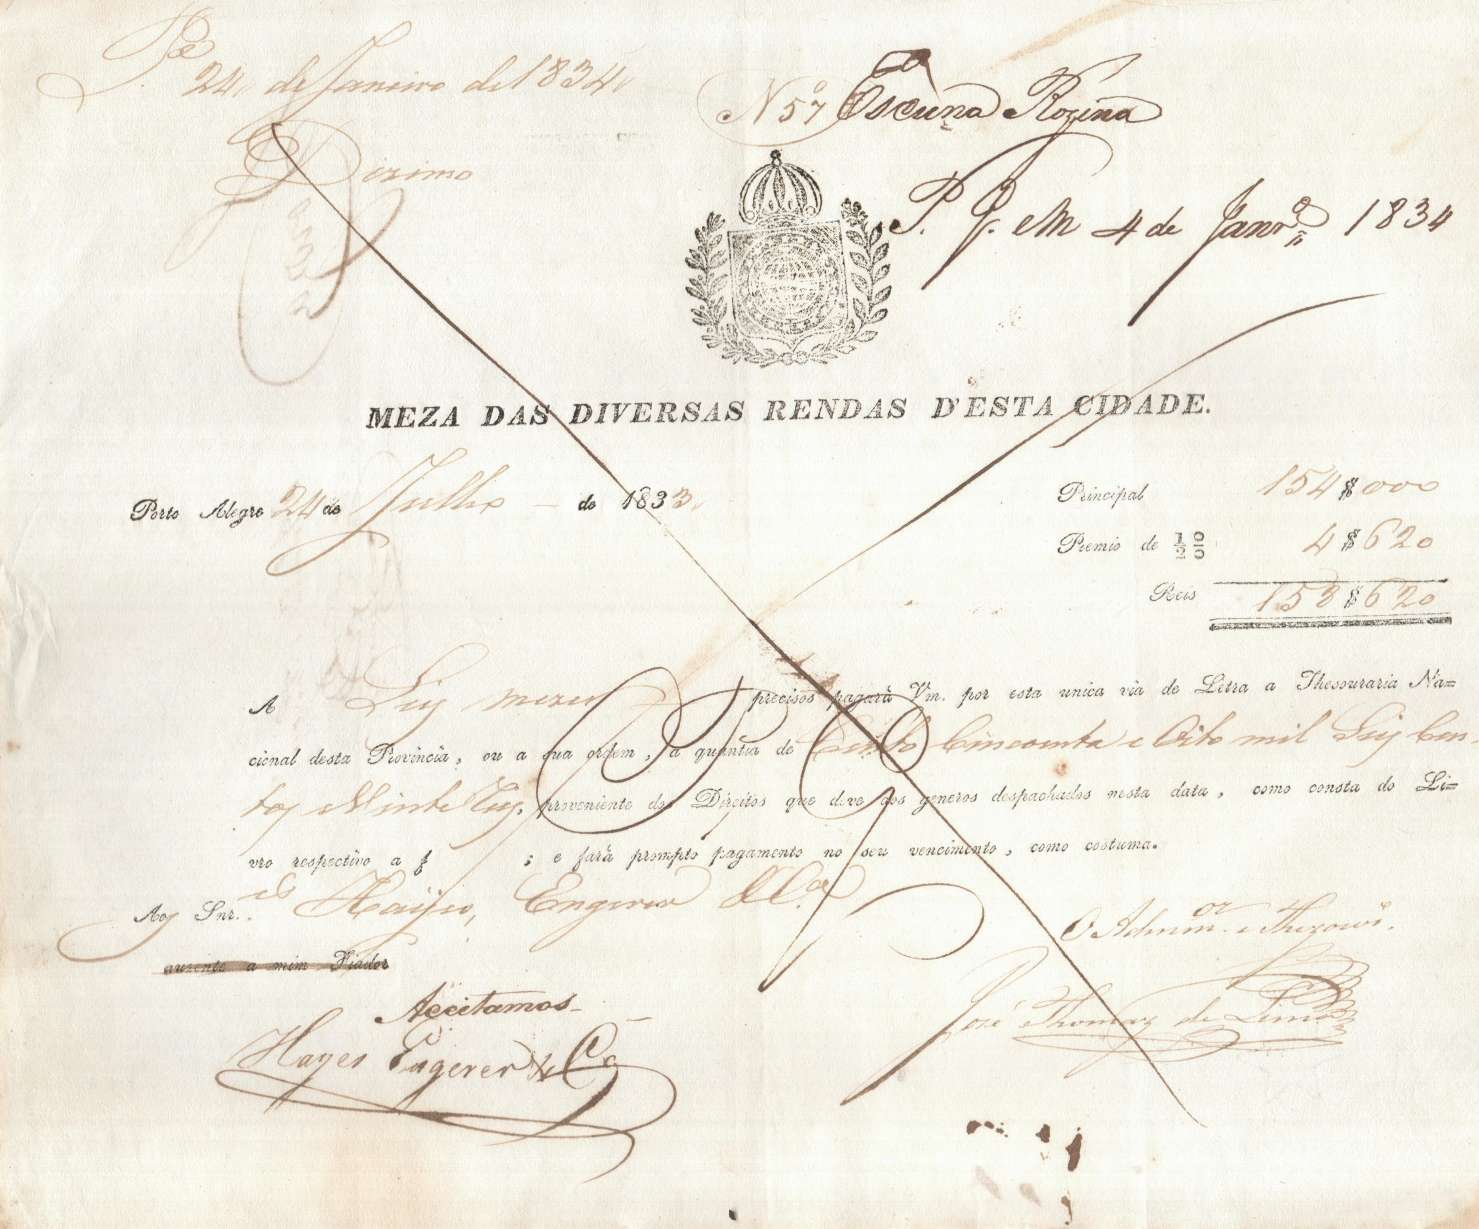 24 de Janeiro de 1834
Dizimo
Nº 57 Escuna Rozina
P. J. em 4 de Janrº 1834
MEZA DAS DIVERSAS RENDAS D'ESTA CIDADE.
Porto Alegre 24 de Julho de 1833
Principal 154$000
Premio de 1/2 % 4$620
Reis 158$620
A Seis mezes precisos pagará Vm. por esta unica via de Letra a Thesouraria Na=
cional desta Provincia, ou a sua ordem, a quantia de Cento Cincoenta e Oito mil Seis Cen-
tos e Vinte reis, proveniente dos Direitos que deve aos generos despachados nesta data, como consta do Li=
vro respectivo a f ; e fará prompto pagamento no seu vencimento, como costuma.
Aos Snr.es Hayes, Engerer & Ca
auzente a mim Fiador
O Admin.or e Thezour.o
Acceitamos
José Thomaz de Lima
Hayes Engerer & Co